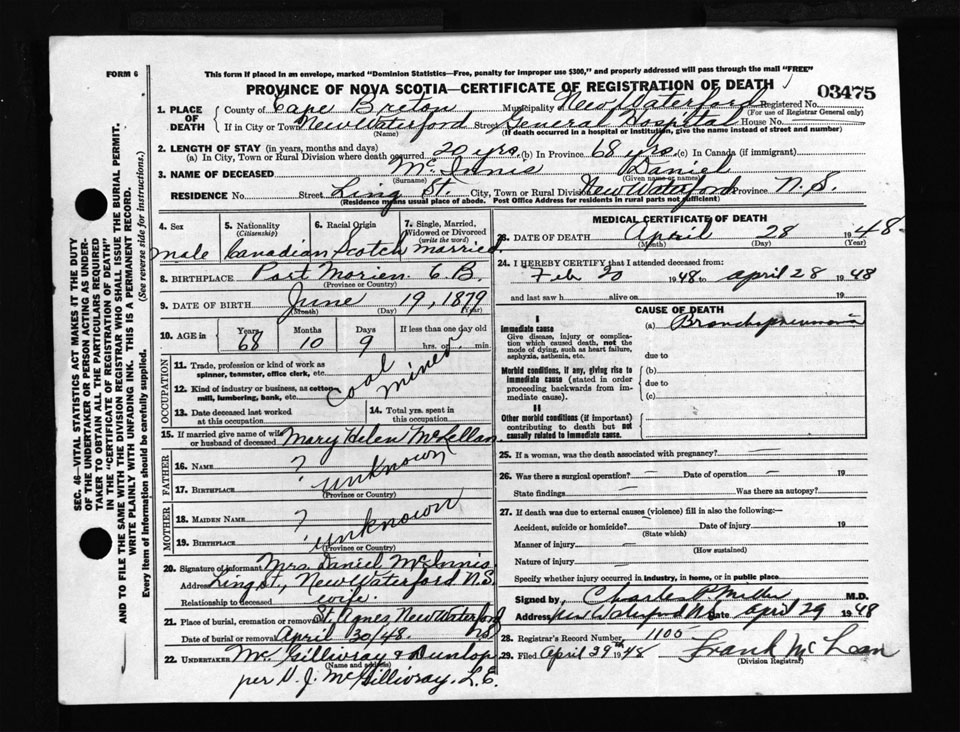 FORM 6
This form if placed in an envelope, marked "Dominion Statistics—Free, penalty for improper use $300," and properly addressed will pass through the mail "FREE"
PROVINCE OF NOVA SCOTIA—CERTIFICATE OF REGISTRATION OF DEATH
03475
1. PLACE OF DEATH
County of Cape Breton Municipality New Waterford Registered No.
(For use of Registrar General only)
If in City or Town New Waterford Street General Hospital House No.
(Name) (If death occurred in a hospital or institution, give the name instead of street and number)
2. LENGTH OF STAY (in years, months and days)
(a) In City, Town or Rural Division where death occurred 20 yrs. (b) In Province 68 yrs. (c) In Canada (if immigrant)
3. NAME OF DECEASED McInnis Daniel
(Surname) (Given name or names)
RESIDENCE No. Street Ling St. City, Town or Rural Division New Waterford Province N.S.
(Residence means usual place of abode. Post Office Address for residents in rural parts not sufficient)
4. Sex
male
5. Nationality
(Citizenship)
Canadian
6. Racial Origin
Scotch
7. Single, Married, Widowed or Divorced
(write the word)
married
8. BIRTHPLACE Port Morien C.B.
(Province or Country)
9. DATE OF BIRTH June 19, 1879
(Month) (Day) (Year)
10. AGE in Years Months Days If less than one day old
68 10 9 hrs. or min
OCCUPATION
11. Trade, profession or kind of work as spinner, teamster, office clerk, etc.
12. Kind of industry or business, as cotton-mill, lumbering, bank, etc.
coal miner
13. Date deceased last worked at this occupation
14. Total yrs. spent in this occupation
15. If married give name of wife or husband of deceased Mary Helen McLellan
FATHER
16. NAME ?
17. BIRTHPLACE unknown
(Province or Country)
MOTHER
18. MAIDEN NAME ?
19. BIRTHPLACE unknown
(Province or Country)
20. Signature of informant Mrs. Daniel McInnis
Address Ling St., New Waterford N.S.
Relationship to deceased wife.
21. Place of burial, cremation or removal St. Agnes New Waterford NS
Date of burial or removal April 30/48.
22. UNDERTAKER McGillivray & Dunlop
(Name and address)
per D. J. McGillivray. L.E.
MEDICAL CERTIFICATE OF DEATH
23. DATE OF DEATH April 28 1948
(Month) (Day) (Year)
24. I HEREBY CERTIFY that I attended deceased from:
Feb 20 1948 to april 28 1948
and last saw h alive on 19
CAUSE OF DEATH
I
Immediate cause
Give disease, injury or complication which caused death, not the mode of dying, such as heart failure, asphyxia, asthenia, etc.
(a) Bronchopneumonia
due to
Morbid conditions, if any, giving rise to immediate cause (stated in order proceeding backwards from immediate cause).
(b)
due to
(c)
II
Other morbid conditions (if important) contributing to death but not causally related to immediate cause.
25. If a woman, was the death associated with pregnancy? —
26. Was there a surgical operation? — Date of operation — 19
State findings — Was there an autopsy?
27. If death was due to external causes (violence) fill in also the following:—
Accident, suicide or homicide? Date of injury 19
(State which)
Manner of injury —
(How sustained)
Nature of injury —
Specify whether injury occurred in industry, in home, or in public place
Signed by Charles P Miller M.D.
Address New Waterford NS Date April 29 1948
28. Registrar's Record Number 1100
29. Filed April 29th 1948 Frank McLean
(Division Registrar)
SEC. 46—VITAL STATISTICS ACT MAKES IT THE DUTY
OF THE UNDERTAKER OR PERSON ACTING AS UNDERTAKER TO OBTAIN ALL THE PARTICULARS REQUIRED
IN THE "CERTIFICATE OF REGISTRATION OF DEATH"
AND TO FILE THE SAME WITH THE DIVISION REGISTRAR WHO SHALL ISSUE THE BURIAL PERMIT.
WRITE PLAINLY WITH UNFADING INK. THIS IS A PERMANENT RECORD.
Every item of information should be carefully supplied. (See reverse side for instructions.)